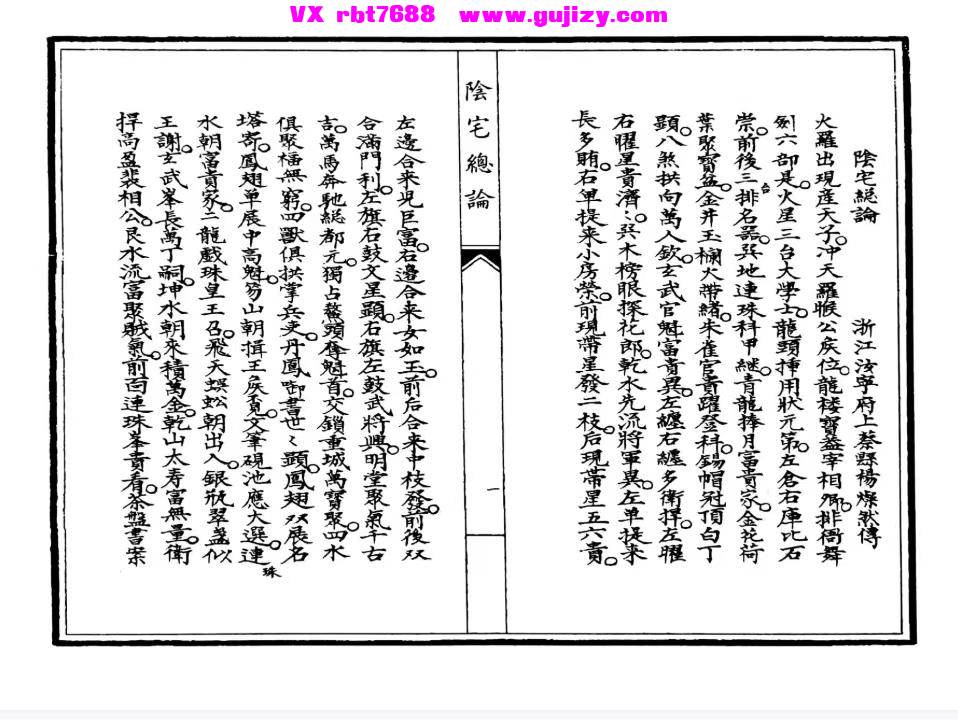 VX rbt7688 www.gujizy.com
陰宅總論 浙江汝寧府上蔡縣楊燦然傳
火羅出現産天子冲天羅睺公侯位龍楼寳盖宰相卿排衙舞
劍六部是火星三台大學士龍頭揷用狀元第左倉右庫比石
崇前後三台排名器巽地連珠科甲継青龍捧月富貴家金花荷
葉聚寳盆金井玉欄火帶緒朱雀官貴躍登科錫帽冠頂白丁
顕八煞拱向萬人欽玄武官魁富貴異左纏右纏多衛捍左曜
右曜星貴濟〻巽木榜眼探花郎乾水先流將軍異左单提来
長多賄右单提来小房榮前現帶星發二枝后現帶星五六貴
陰宅總論
一
左邊合来兄巨富右邊合来女如玉前后合来中枝發前後双
合滿門利左旗右鼓文星顕右旗左鼓武將興明堂聚氣千古
吉萬馬奔馳総都元獨占鰲頭奪魁首交鎖重城萬寳聚四水
俱聚福無窮四獸俱拱掌兵吏丹鳳啣書世〻顕鳳翅双展名
塔寄鳳翅单展中高魁笏山朝揖王侯覔文筆硯池應大選連珠
水朝富貴家二龍戲珠皇王召飛天蜈蚣朝出入銀瓶翠盞似
王謝玄武峯長萬丁嗣坤水朝來積萬金乾山太寿富無量衛
捍高盈裴相公艮水流富聚賊氣前面連珠峯貴看茶盤書案